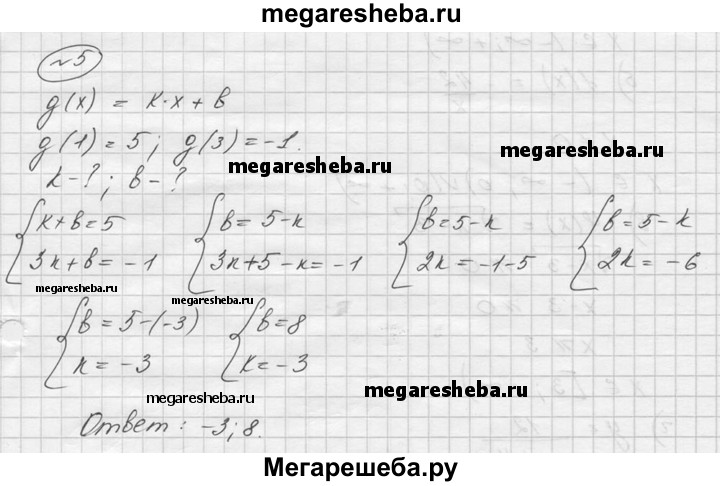 megaresheba.ru
№5
g(x) = k·x + b
g(1) = 5; g(3) = -1.
megaresheba.ru
megaresheba.ru
k - ? ; b - ?
{k+b=5 {b=5-k {b=5-k {b=5-k
{3k+b=-1 {3k+5-k=-1 {2k=-1-5 {2k=-6
megaresheba.ru
megaresheba.ru
{b=5-(-3) {b=8
{k=-3 {k=-3
megaresheba.ru
megaresheba.ru
Ответ: -3; 8.
Мегарешеба.ру